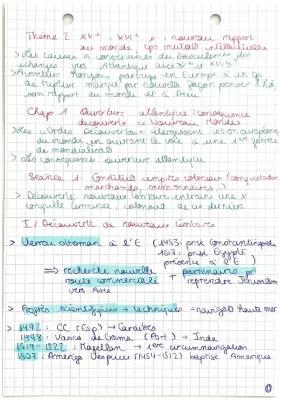 Thème 2 XVe - XVIe s : nouveau rapport
au monde, tps mutat° intellectuelle
> Les causes & conséquences du basculement des
échanges vers Atlantique aux XVe et XVIe s
en Europe à un tps
de rupture marqué par nouvelle façon penser l'h,
son rapport au monde et à Dieu
Chap 1 Ouverture atlantique : conséquence
découverte « Nouveau Monde »
> Les « Grdes Découvertes » élargissent vision européens
du monde en ouvrant la voie à une 1ère forme
de mondialisat°
> Les conséquences ouverture atlantique
Séance 1 : Constitut° empires coloniaux (conquistadors
marchands, missionnaires)
> Découverte nouveaux
conquête
I / Découverte de nouveaux territoires
> Verrou ottoman à l'E (1453 : prise Constantinople
1517 : prise Egypte
présence à l'E)
⇒ recherche nouvelle
route commerciale
vers Asie
+ partenaires pr
reprendre Jérusalem
> Progrès scientifiques → techniques → navigat° haute mer
> 1492 : CC (Esp) → Caraïbes
1498 : Vasco de Gama (Port) → Inde
1519 - 1522 : Magellan → 1ère circumnavigation
1507 : Amerigo Vespucci (1454-1512) baptise Amérique